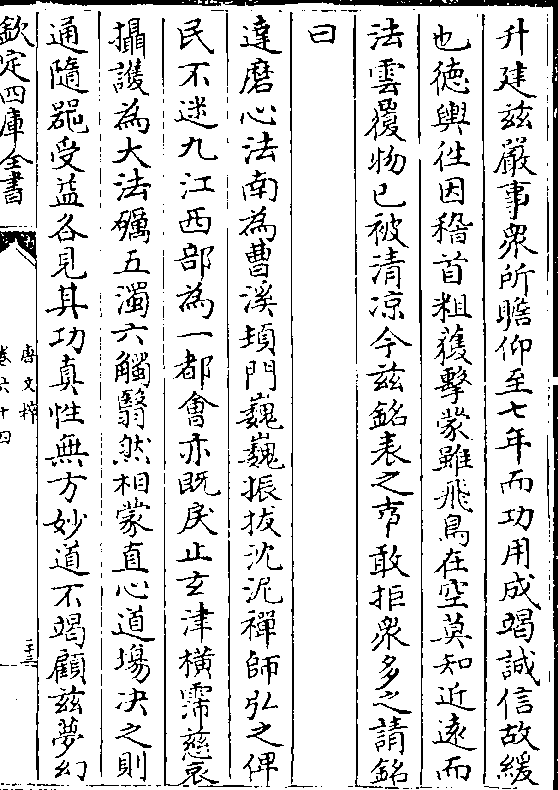 升建兹嚴事衆所瞻仰至七年而功用成竭誠信故緩
也徳輿徃因稽首粗獲擊蒙雖飛鳥在空莫知近逺而
法雲覆物已被清凉今兹銘表之事敢拒衆多之請銘
曰
達磨心法南為曹溪頊門巍巍振拔沈泥禪師弘之俾
民不迷九江西部為一都會亦既戾止玄津橫霈慈哀
攝護為大法礪五濁六觸翳然相蒙直心道塲决之則
通隨噐受益各見其功真性無方妙道不竭顧兹夢幻
欽定四庫全書
唐文粹
卷六十四
二十三